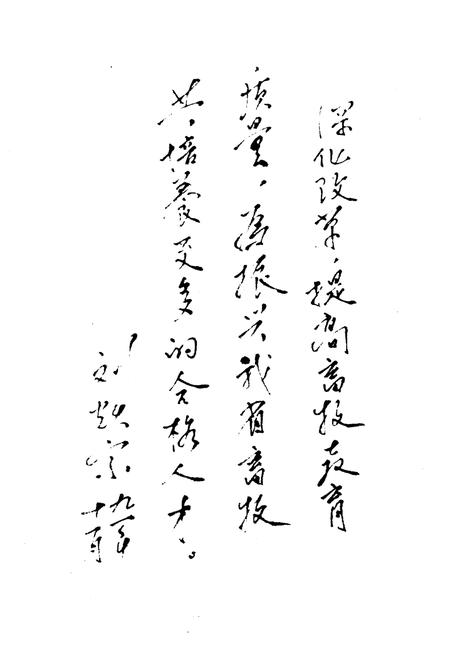 深化改革,提高畜牧教育
质量,为振兴我省畜牧
业,培养更多的合格人才。
刘
宗
九一年
十月